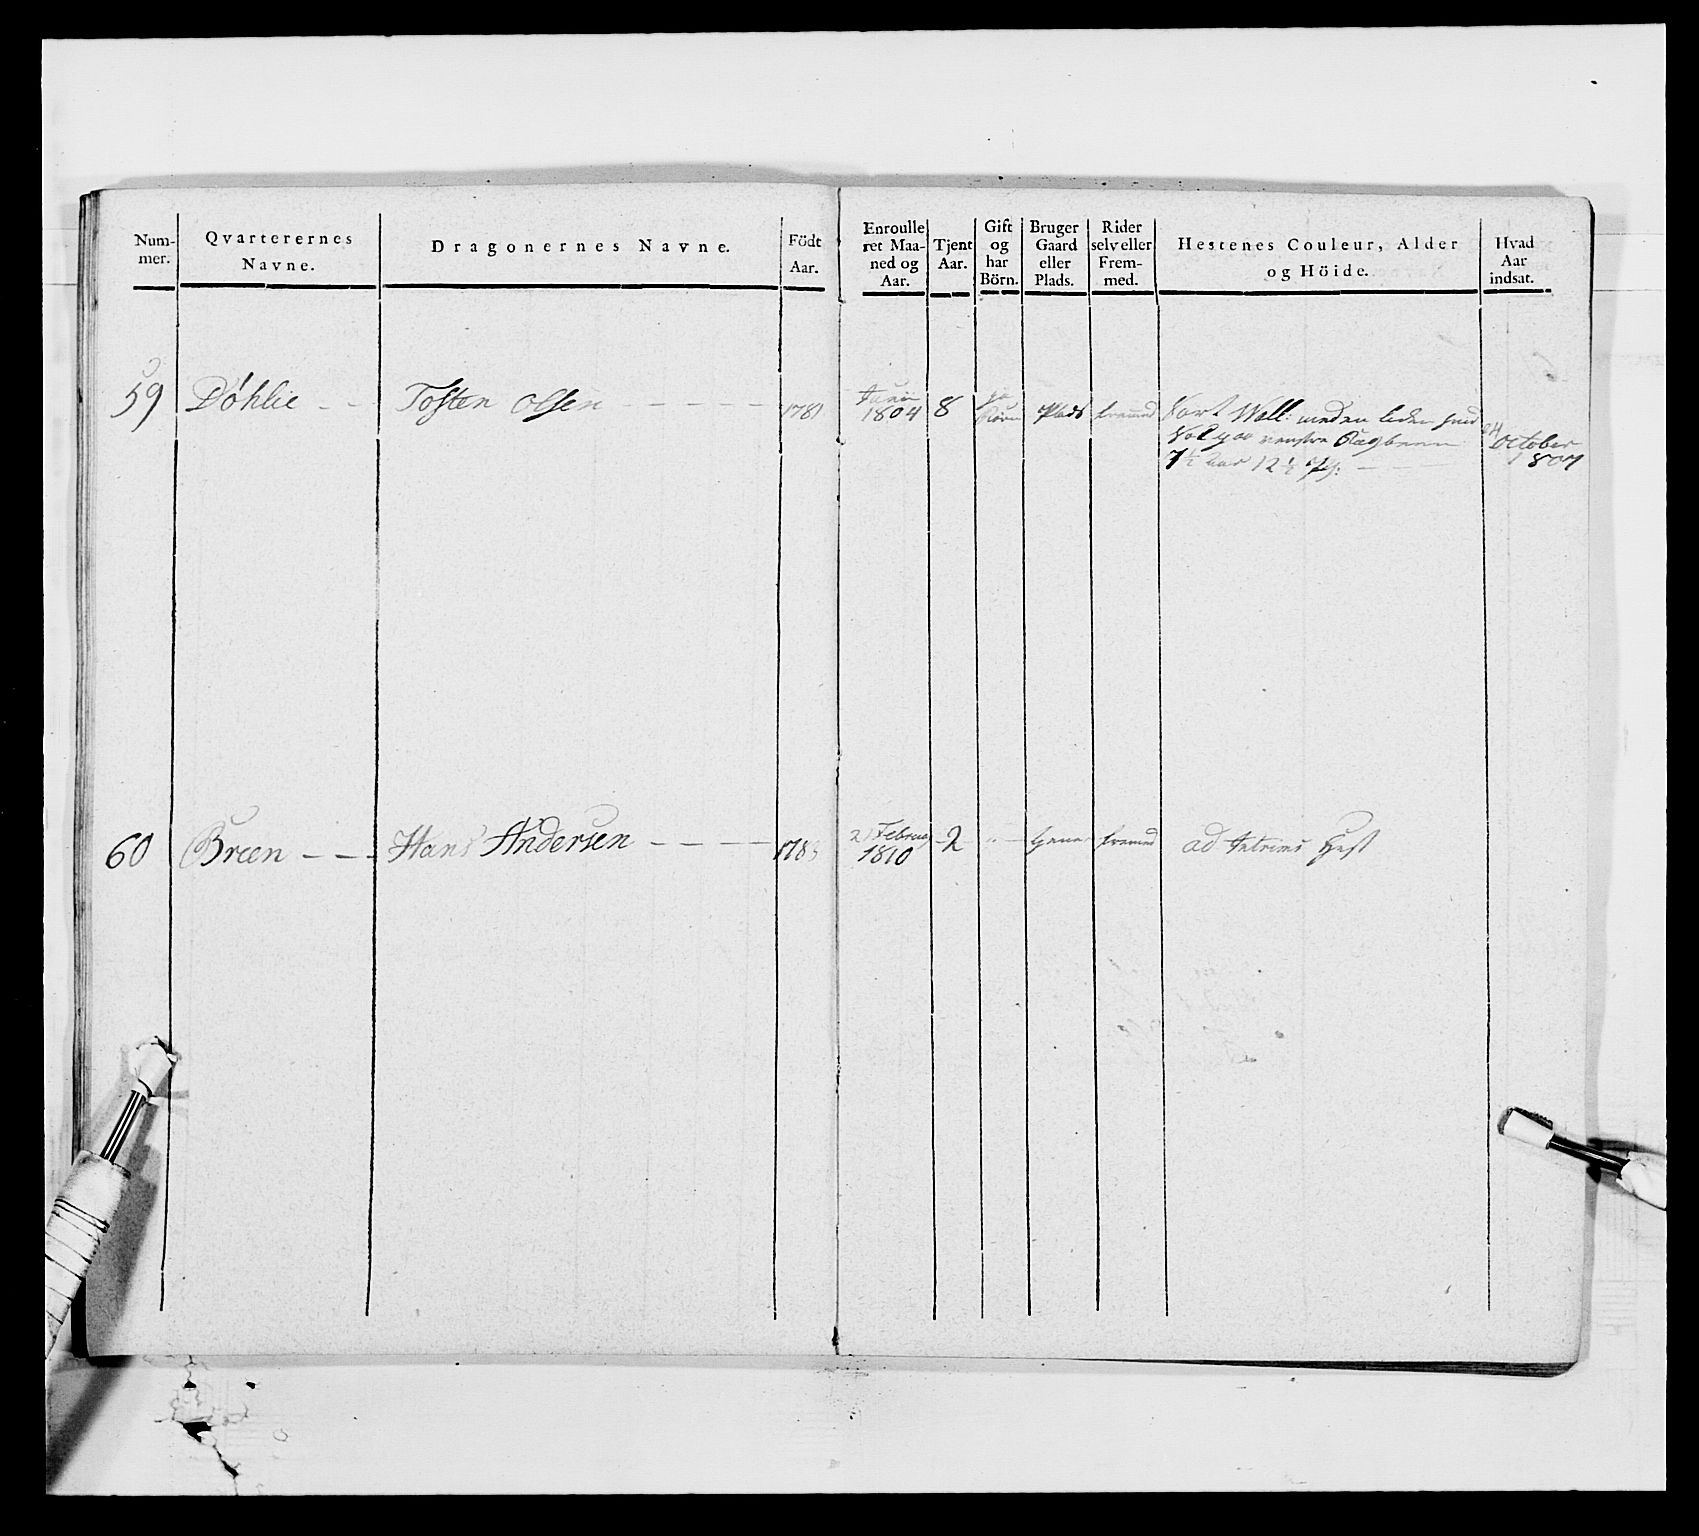 Num-
mer.
Qvarterernes
Navne.
Dragonernes Navne.
Födt
Aar.
Enroulle
ret Maa-
ned og
Aar.
Tjent
Aar.
Gift
og
har
Börn.
Bruger
Gaard
eller
Plads.
Rider
selv eller
Frem-
med.
Hestenes Couleur, Alder
og Höide.
Hvad
Aar
indsat.
59
Döhlie
Tosten Olsen
1781
Junii
1804
8
ja
Börn
Plads
fremed
Sort Wall: uden liden hvid
venstre Bagbeen
7½ Aar 12½
24
October
1807
60
Breen
Hans Andersen
178
21 Februar
1810
2
fremed
ad Interims Hest